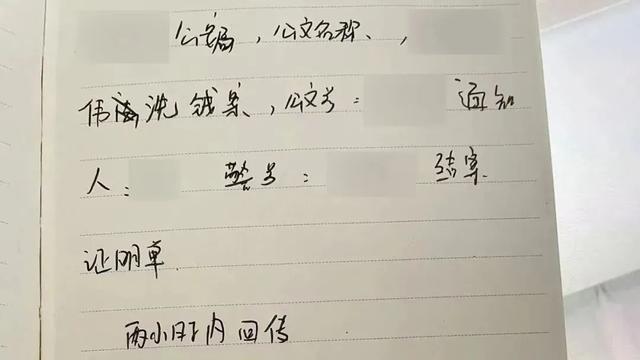 公安局，公文名称、，
伟洗钱案，公文号：通知
人：警号：结案
证明单
两小时内回传